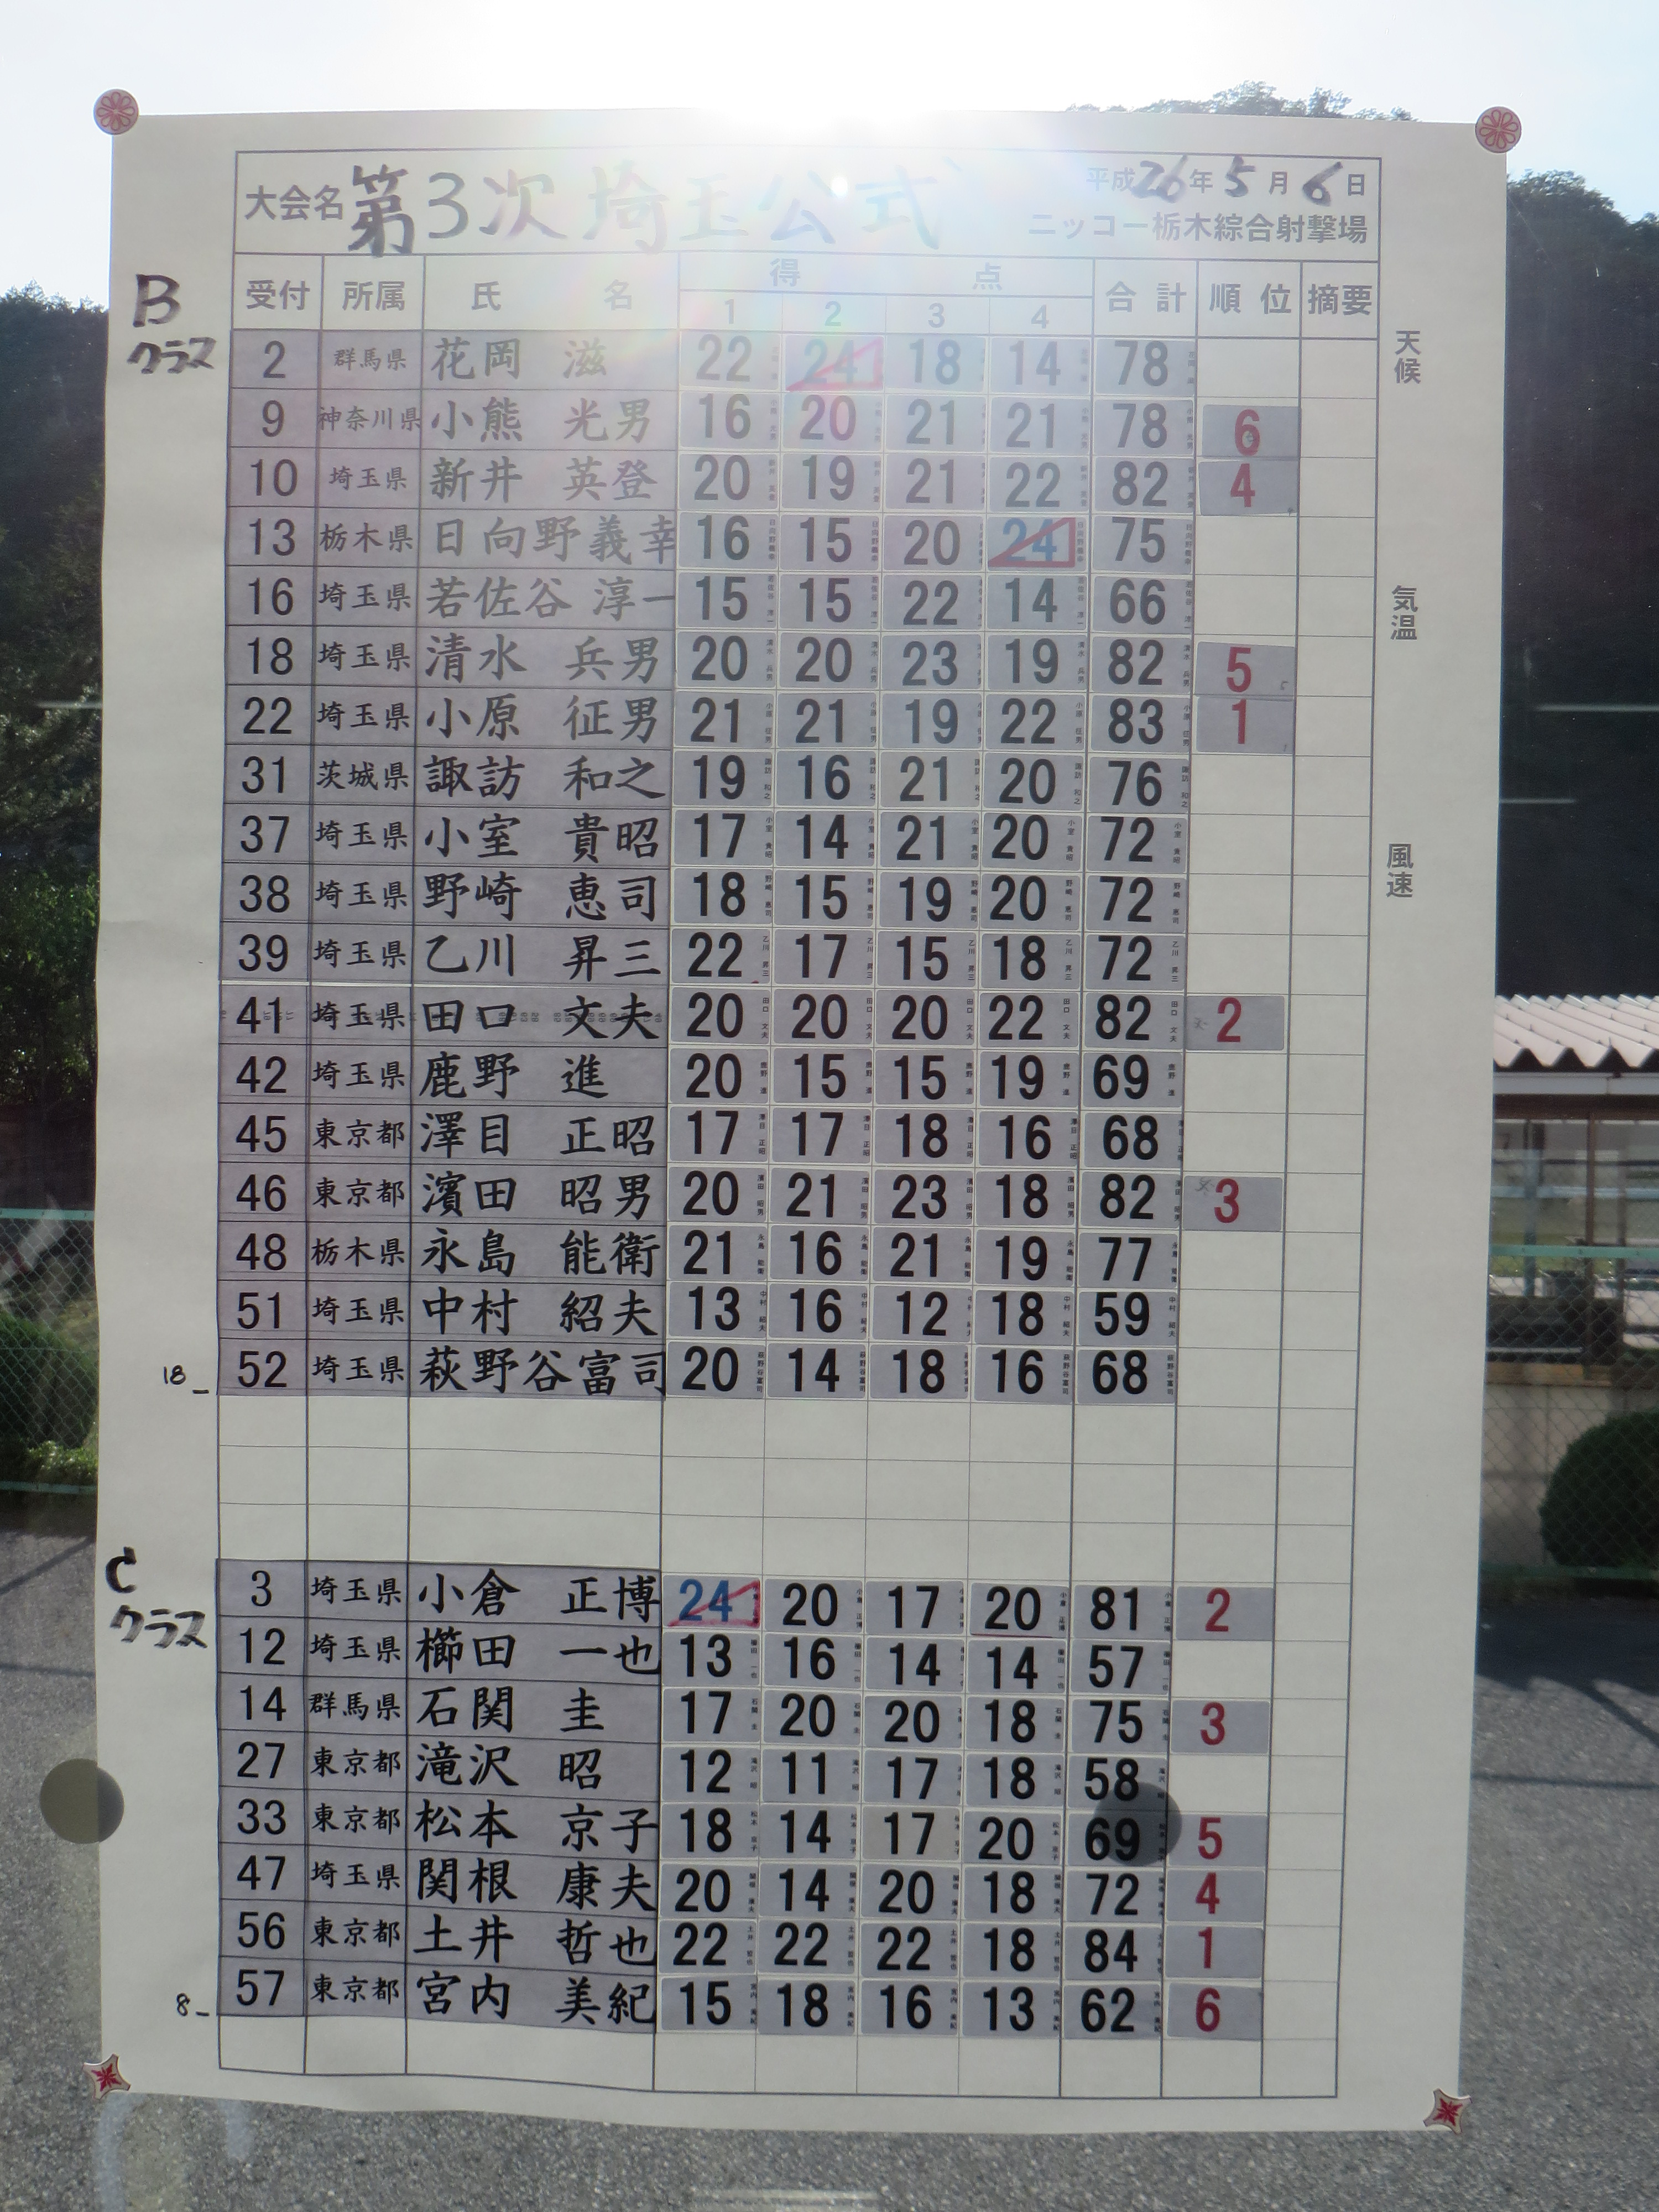 大会名 第3次 埼玉公式 平成26年5月6日
ニッコー栃木綜合射撃場
Bクラス
受付 所属 氏名 得点 合計 順位 摘要
1 2 3 4
2 群馬県 花岡 滋 22 24 18 14 78
9 神奈川県 小熊 光男 16 20 21 21 78 6
10 埼玉県 新井 英登 20 19 21 22 82 4
13 栃木県 日向野義幸 16 15 20 24 75
16 埼玉県 若佐谷 淳一 15 15 22 14 66
18 埼玉県 清水 兵男 20 20 23 19 82 5
22 埼玉県 小原 征男 21 21 19 22 83 1
31 茨城県 諏訪 和之 19 16 21 20 76
37 埼玉県 小室 貴昭 17 14 21 20 72
38 埼玉県 野崎 恵司 18 15 19 20 72
39 埼玉県 乙川 昇三 22 17 15 18 72
41 埼玉県 田口 文夫 20 20 20 22 82 2
42 埼玉県 鹿野 進 20 15 15 19 69
45 東京都 澤目 正昭 17 17 18 16 68
46 東京都 濱田 昭男 20 21 23 18 82 3
48 栃木県 永島 能衛 21 16 21 19 77
51 埼玉県 中村 紹夫 13 16 12 18 59
18 52 埼玉県 萩野谷富司 20 14 18 16 68
Cクラス
3 埼玉県 小倉 正博 24 20 17 20 81 2
12 埼玉県 櫛田 一也 13 16 14 14 57
14 群馬県 石関 圭 17 20 20 18 75 3
27 東京都 滝沢 昭 12 11 17 18 58
33 東京都 松本 京子 18 14 17 20 69 5
47 埼玉県 関根 康夫 20 14 20 18 72 4
56 東京都 土井 哲也 22 22 22 18 84 1
8 57 東京都 宮内 美紀 15 18 16 13 62 6
天候
気温
風速